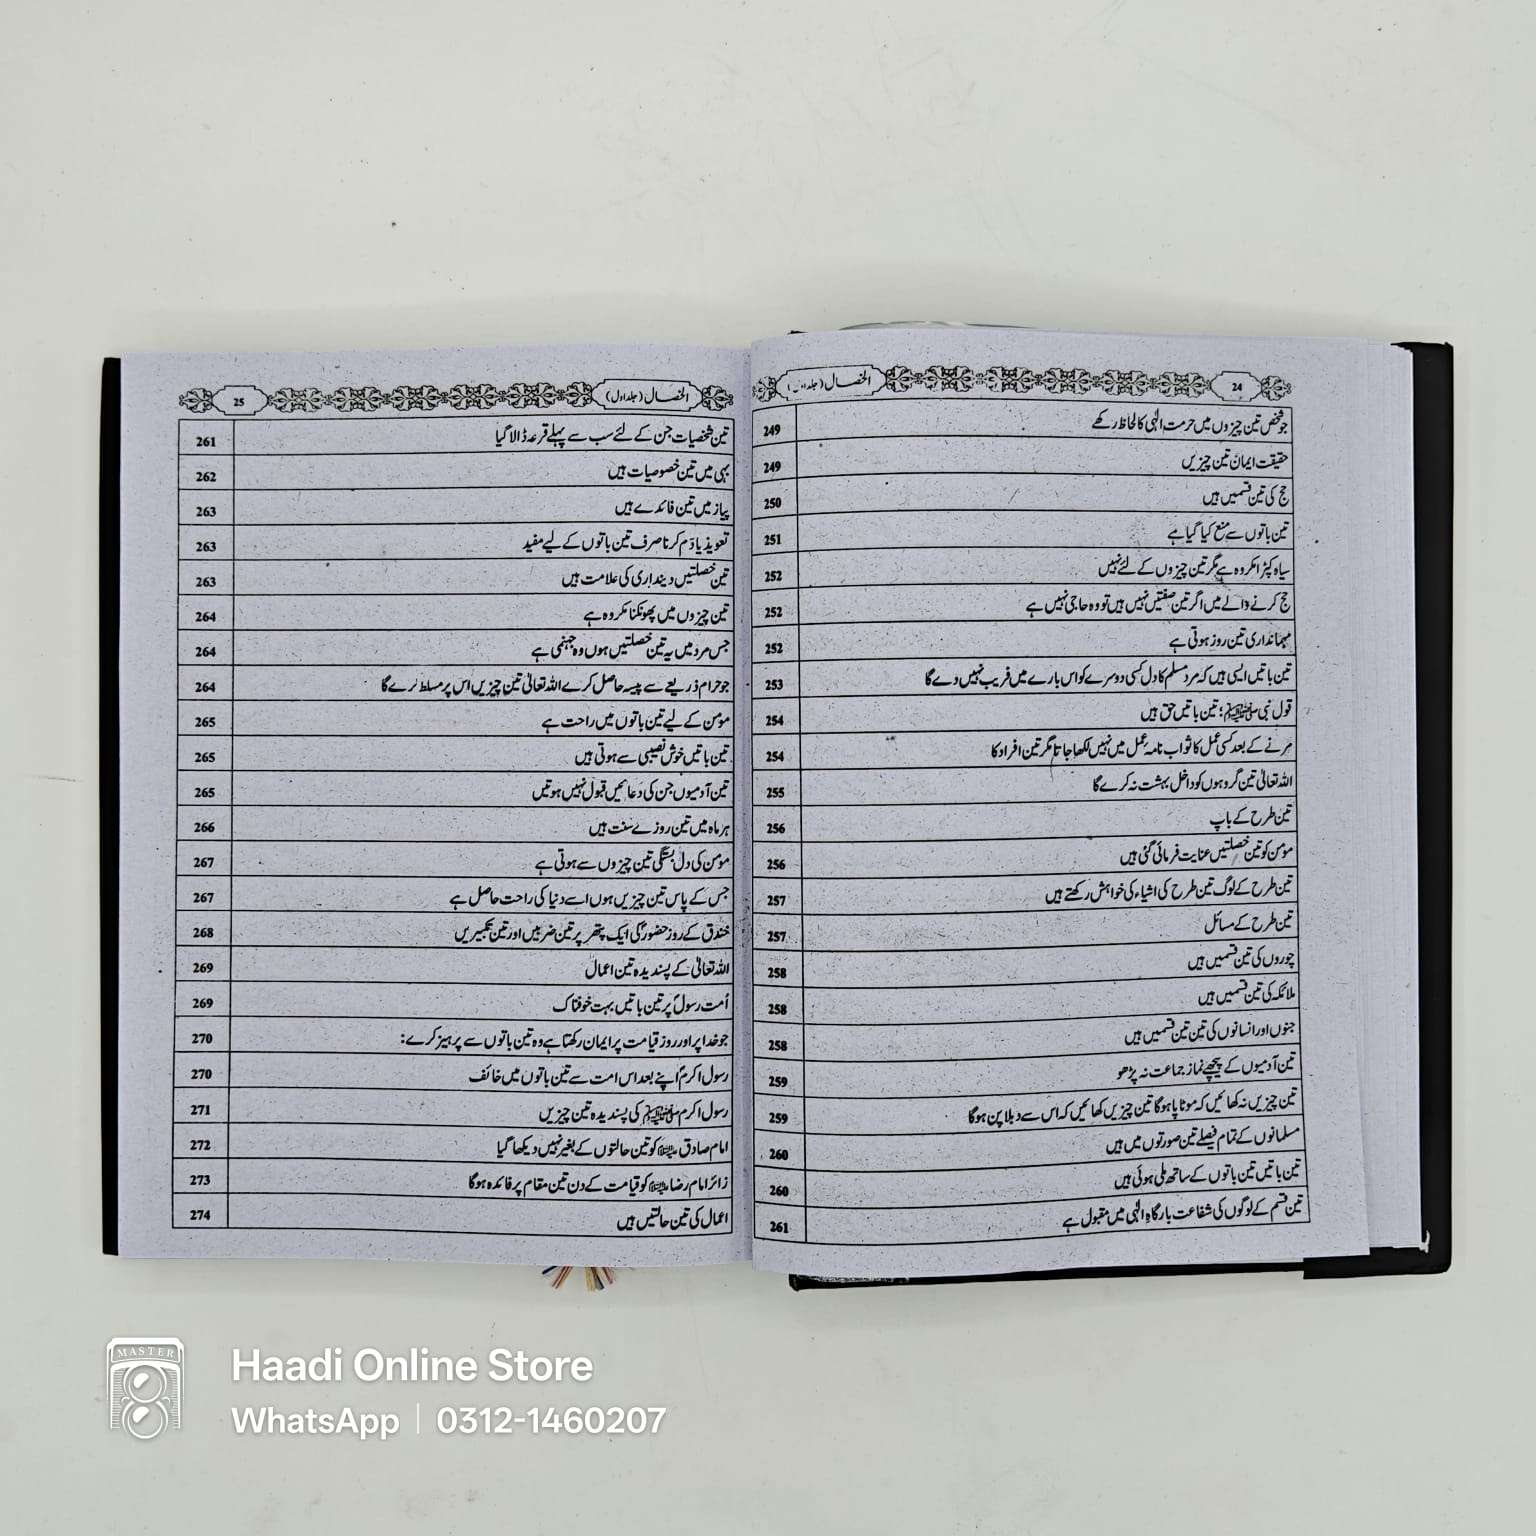 24
الخصال (جلد اول)
جو شخص تین چیزوں میں حرمت الٰہی کا لحاظ رکھے 249
حقیقت ایمان تین چیزیں 249
حج کی تین قسمیں ہیں 250
تین باتوں سے منع کیا گیا ہے 251
سیاہ کپڑا مکروہ ہے مگر تین چیزوں کے لئے نہیں 252
حج کرنے والے میں اگر تین صفتیں نہیں ہیں تو وہ حاجی نہیں ہے 252
مہمانداری تین روز ہوتی ہے 252
تین باتیں ایسی ہیں کہ مرد مسلم کا دل کسی دوسرے کو اس بارے میں فریب نہیں دے گا 253
قول نبی ﷺ: تین باتیں حق ہیں 254
مرنے کے بعد کسی عمل کا ثواب نامہ عمل میں نہیں لکھا جاتا مگر تین افراد کا 254
اللہ تعالیٰ تین گروہوں کو داخل بہشت نہ کرے گا 255
تین طرح کے باپ 256
مومن کو تین خصلتیں عنایت فرمائی گئی ہیں 256
تین طرح کے لوگ تین طرح کی اشیاء کی خواہش رکھتے ہیں 257
تین طرح کے مسائل 257
چوروں کی تین قسمیں ہیں 258
ملائکہ کی تین قسمیں ہیں 258
جنوں اور انسانوں کی تین تین قسمیں ہیں 258
تین آدمیوں کے پیچھے نماز جماعت نہ پڑھو 259
تین چیزیں نہ کھائیں کہ موٹاپا ہوگا تین چیزیں کھائیں کہ اس سے دبلا پن ہوگا 259
مسلمانوں کے تمام فیصلے تین صورتوں میں ہیں 260
تین باتیں تین باتوں کے ساتھ ملی ہوئی ہیں 260
تین قسم کے لوگوں کی شفاعت بارگاہ الٰہی میں مقبول ہے 261
الخصال (جلد اول)
25
تین شخصیات جن کے لئے سب سے پہلے قرعہ ڈالا گیا 261
بہی میں تین خصوصیات ہیں 262
پیاز میں تین فائدے ہیں 263
تعویذ یا دَم کرنا صرف تین باتوں کے لیے مفید 263
تین خصلتیں دینداری کی علامت ہیں 263
تین چیزوں میں پھونکنا مکروہ ہے 264
جس مرد میں یہ تین خصلتیں ہوں وہ جہنمی ہے 264
جو حرام ذریعے سے پیسہ حاصل کرے اللہ تعالیٰ تین چیزیں اس پر مسلط کرے گا 264
مومن کے لیے تین باتوں میں راحت ہے 265
تین باتیں خوش نصیبی سے ہوتی ہیں 265
تین آدمیوں جن کی دعائیں قبول نہیں ہوتیں 265
ہر ماہ میں تین روزے سنت ہیں 266
مومن کی دل بستگی تین چیزوں سے ہوتی ہے 267
جس کے پاس تین چیزیں ہوں اسے دنیا کی راحت حاصل ہے 267
خندق کے روز حضورؐ کی ایک پتھر پر تین ضربیں اور تین تکبیریں 268
اللہ تعالیٰ کے پسندیدہ تین اعمال 269
اُمت رسولؐ پر تین باتیں بہت خوفناک 269
جو خدا پر اور روز قیامت پر ایمان رکھتا ہے وہ تین باتوں سے پرہیز کرے: 270
رسول اکرمؐ اپنے بعد اس امت سے تین باتوں میں خائف 270
رسول اکرم ﷺ کی پسندیدہ تین چیزیں 271
امام صادق علیہ السلام کو تین حالتوں کے بغیر نہیں دیکھا گیا 272
زائر امام رضا علیہ السلام کو قیامت کے دن تین مقام پر فائدہ ہوگا 273
اعمال کی تین حالتیں ہیں 274
MASTER
Haadi Online Store
WhatsApp | 0312-1460207